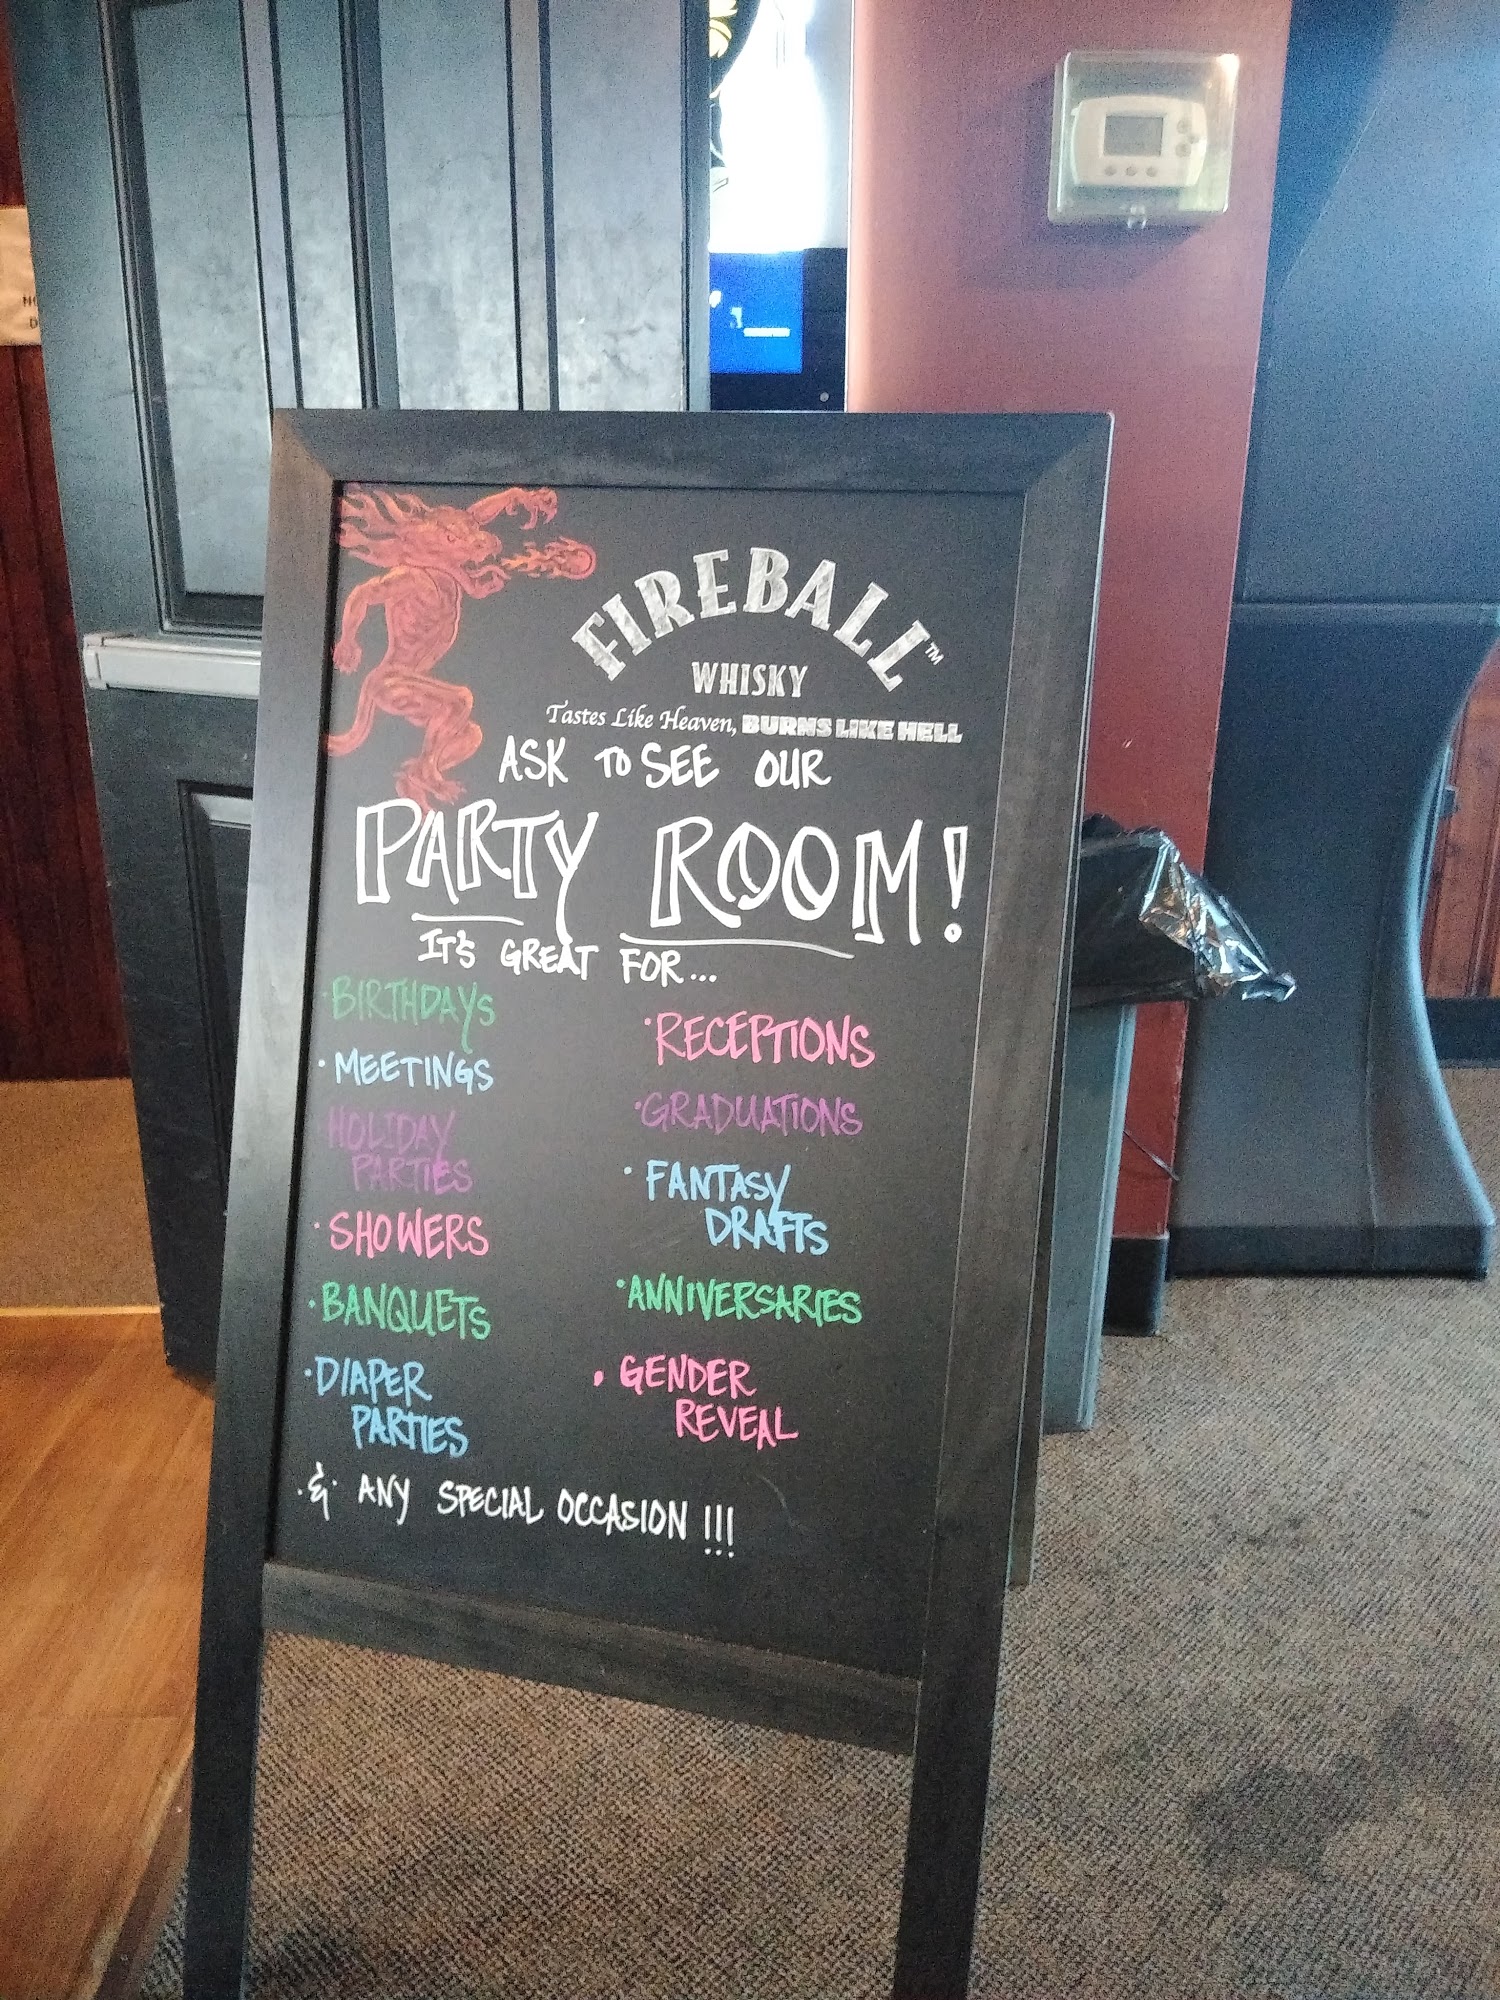 FIREBALL™
WHISKY
Tastes Like Heaven, BURNS LIKE HELL
ASK TO SEE OUR
PARTY ROOM!
IT'S GREAT FOR...
·BIRTHDAYS
·MEETINGS
HOLIDAY
PARTIES
·SHOWERS
·BANQUETS
·DIAPER
PARTIES
·RECEPTIONS
·GRADUATIONS
·FANTASY
DRAFTS
·ANNIVERSARIES
·GENDER
REVEAL
·&· ANY SPECIAL OCCASION !!!